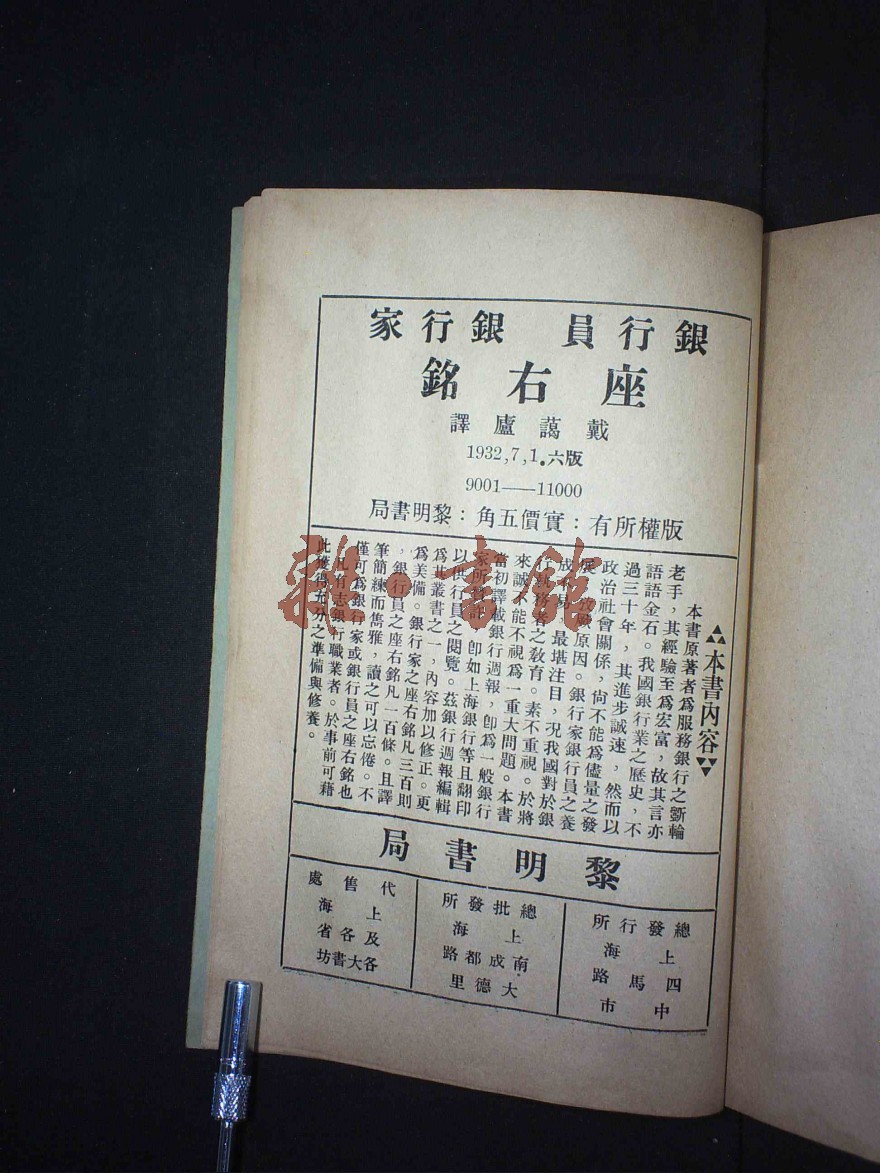 銀行員 銀行家
座右銘
戴藹廬譯
1932,7,1.六版
9001——11000
版權所有：實價五角：黎明書局
本書內容
本書原著者為服務銀行之斵輪
老手，其經驗至為宏富，故其言亦
語語金石。我國銀行業之歷史，不
過三十年，其進步誠速，然而以
政治社會關係，尚不能為儘量之發
展，原因。銀行家銀行員之養
成不易，最堪注目，况我國對於銀
行就將者之教育。素不重視。於將
來誠不能不視為一重大問題。本書
當初譯載銀行週報，即為一般銀行
家所贊許，卽如上海銀行等且翻印
以供行員之閱覽。茲銀行週報編輯
為其叢書之一，內容加以修正。更
為美備。銀行家之座右銘凡三百則
，銀行員之座右銘凡一百條。且譯
筆簡練而雋雅，讀之可以忘倦。不
僅可為銀行家或銀行員之座右銘也
凡有志銀行職業者。於事前可藉
此獲得充分之準備與修養。
黎明書局
總發行所
上海
四馬路
中市
總批發所
上海
南成都路
大德里
代售處
上海
及各省
各大書坊
雜·書館